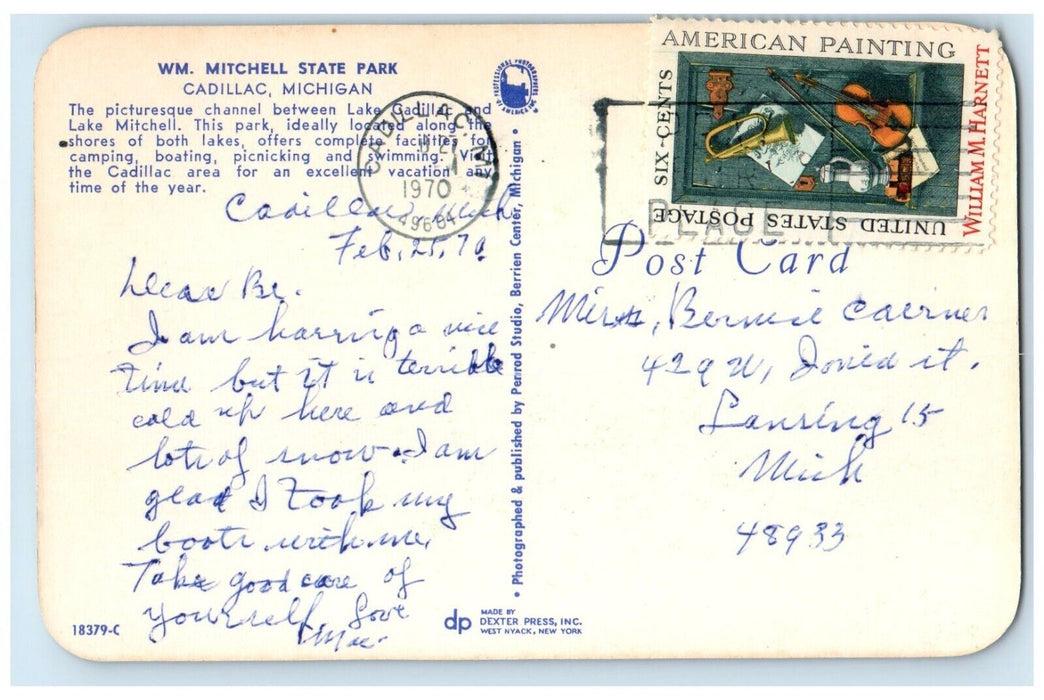 WM. MITCHELL STATE PARK
CADILLAC, MICHIGAN
The picturesque channel between Lake Cadillac and
Lake Mitchell. This park, ideally located along the
shores of both lakes, offers complete facilities for
camping, boating, picnicking and swimming. Visit
the Cadillac area for an excellent vacation any
time of the year.
CADILLAC, MI
1970
49601
Cadillac, Mich
Feb, 25, 70
Dear Be.
I am having a nice
time but it is terrible
cold up here and
lots of snow. I am
glad I took my
boots with me.
Take good care of
yourself. Love
Mae
18379-C
• Photographed & published by Penrod Studio, Berrien Center, Michigan •
dp
MADE BY
DEXTER PRESS, INC.
WEST NYACK, NEW YORK
AMERICAN PAINTING
SIX-CENTS
WILLIAM M. HARNETT
UNITED STATES POSTAGE
PLACE
Post Card
Bernice
429 W,
Lansing 15
Mich
48933